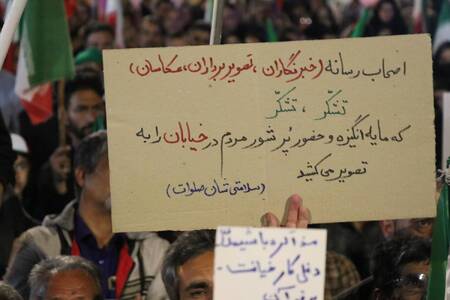 اصحاب رسانه (خبرنگاران، تصویربرداران، عکاسان)
تشکّر ، تشکّر
که مایه انگیزه و حضور پُر شور مردم در خیابان را به
تصویر می‌کشید
(سلامتی شان صلوات)
مذاکره با شیطان
دغل کار خیانت -